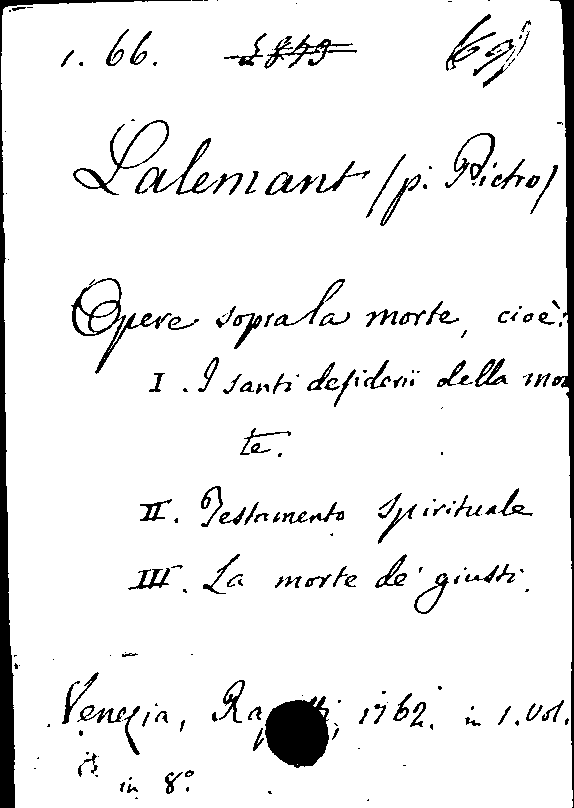 1. 66. 2849 (69)
Lalemant (p. Pietro)
Opere sopra la morte, cioè:
I. I santi desiderii della mor
te.
II. Testamento spirituale
III. La morte de' giusti.
Venezia, 1762. in 1. vol.
in 8°